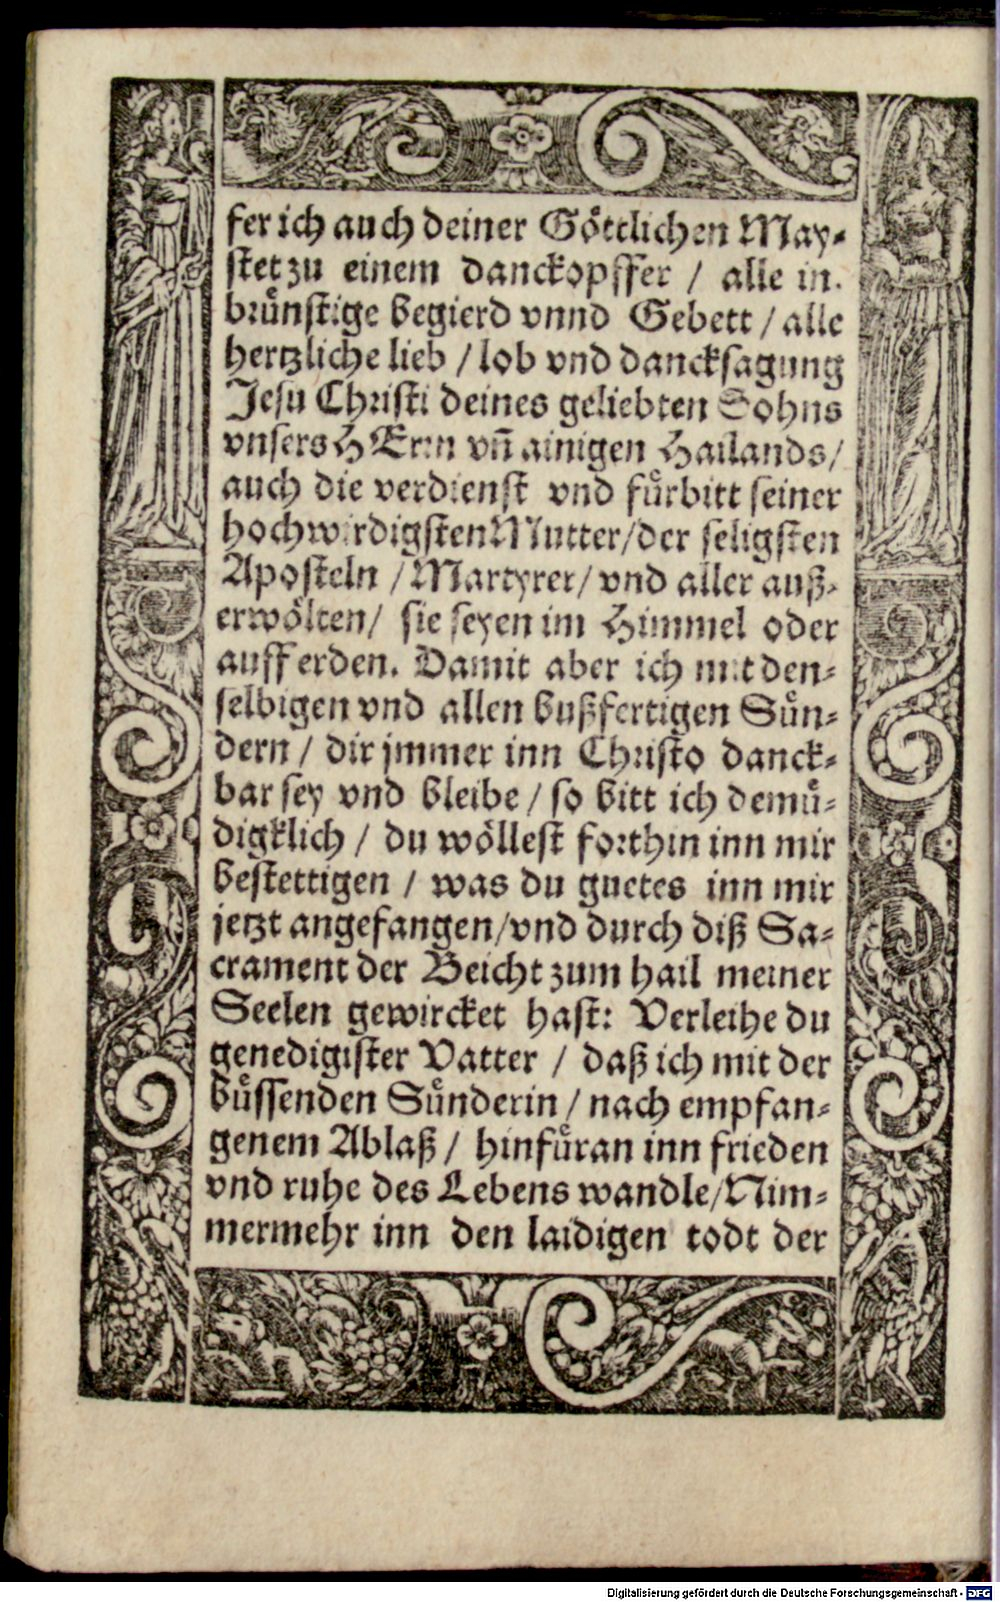 fer ich auch deiner Göttlichen May-
stet zu einem danckopffer / alle in-
brünstige begierd vnnd Gebett / alle
hertzliche lieb / lob vnd dancksagung
Jesu Christi deines geliebten Sohns
vnsers HErrn vñ ainigen Hailands /
auch die verdienst vnd fürbitt seiner
hochwirdigsten Mutter / der seligsten
Aposteln / Martyrer / vnd aller auß-
erwölten / sie seyen im Himmel oder
auff erden. Damit aber ich mit den-
selbigen vnd allen bußfertigen Sün-
dern / dir jmmer inn Christo danck-
bar sey vnd bleibe / so bitt ich demü-
digklich / du wöllest forthin inn mir
bestettigen / was du guetes inn mir
jetzt angefangen / vnd durch diß Sa-
crament der Beicht zum hail meiner
Seelen gewircket hast: Verleihe du
genedigister Vatter / daß ich mit der
büssenden Sünderin / nach empfan-
genem Ablaß / hinfüran inn frieden
vnd ruhe des Lebens wandle / Nim-
mermehr inn den laidigen todt der
Digitalisierung gefördert durch die Deutsche Forschungsgemeinschaft - DFG